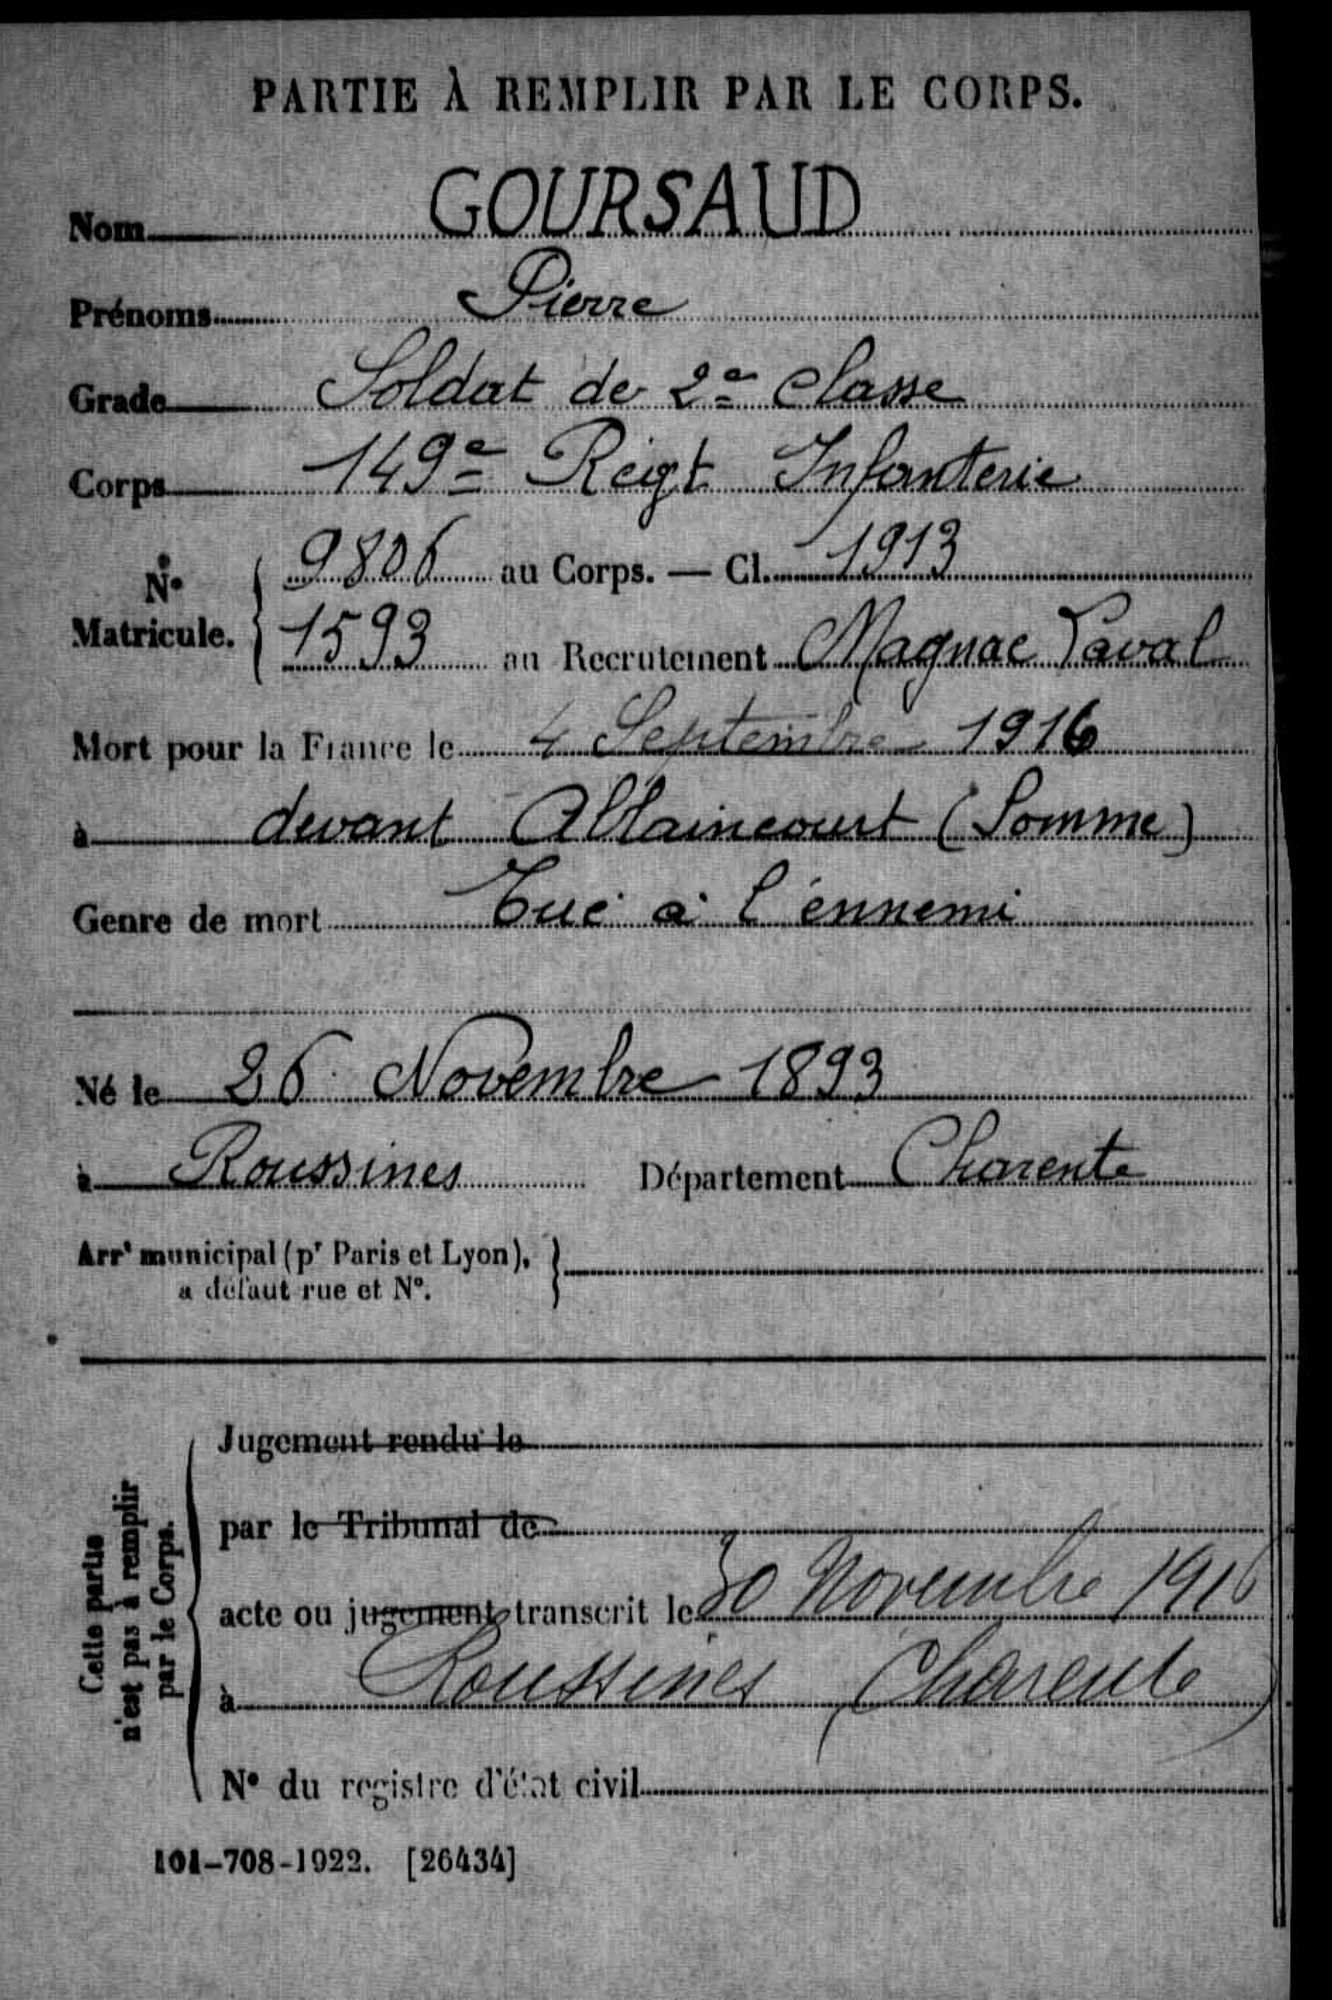 PARTIE À REMPLIR PAR LE CORPS.
Nom GOURSAUD
Prénoms Pierre
Grade Soldat de 2e classe
Corps 149e Régt Infanterie
No Matricule. { 9806 au Corps. — Cl. 1913
1593 au Recrutement Magnac Laval
Mort pour la France le 4 Septembre 1916
à devant Ablaincourt (Somme)
Genre de mort Tué à l'ennemi
Né le 26 Novembre 1893
à Roussines Département Charente
Arrt municipal (pr Paris et Lyon), }
à défaut rue et No.
Cette partie
n'est pas à remplir
par le Corps.
Jugement rendu le
par le Tribunal de
acte ou jugement transcrit le 30 Novembre 1916
à Roussines (Charente)
No du registre d'état civil
101-708-1922. [26434]